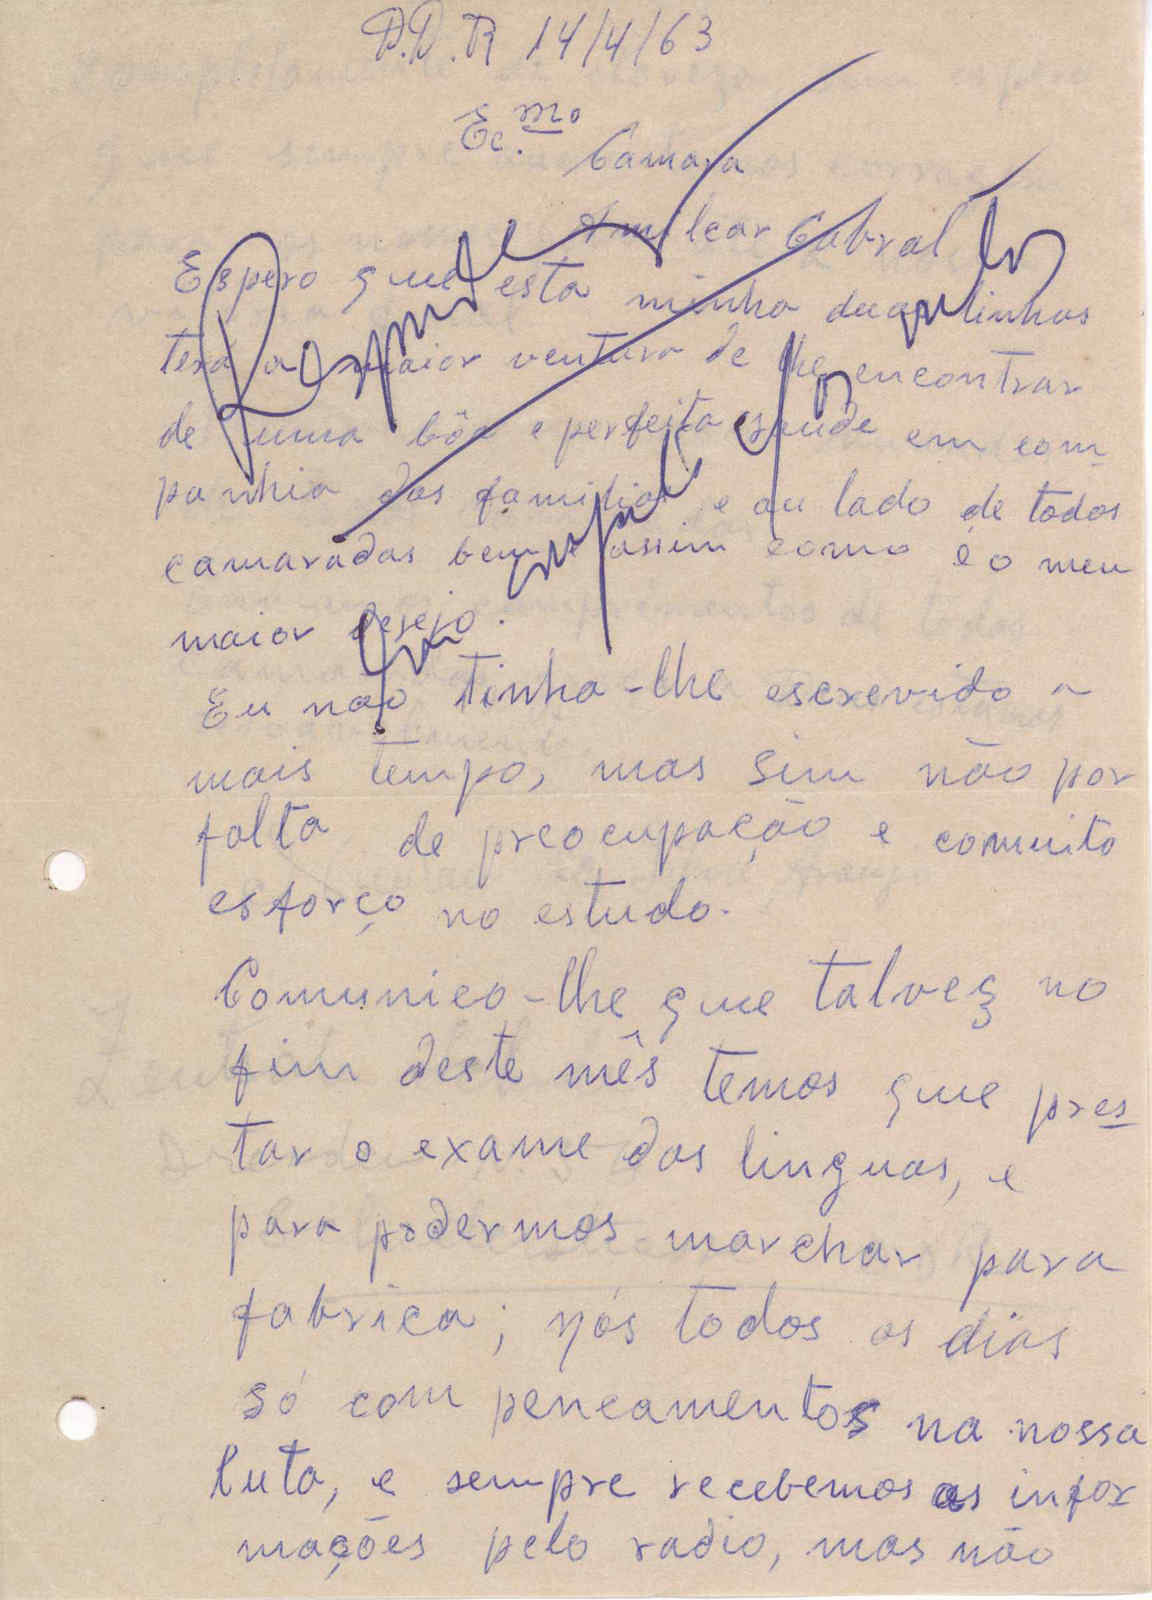 D.D.R 14/4/63
Ec.mo Camara
Amilcar Cabral
Espero que esta minha duas linhas
terá a maior ventura de lhe encontrar
de uma bôa e perfeita saude em com
panhia das familias e au lado de todos
camaradas bem assim como é o meu
maior desejo.
Eu não tinha-lhe escrevido a
mais tempo, mas sim não por
falta de preocupação e comuito
esforço no estudo.
Comunico-lhe que talvez no
fim deste mês temos que pres
tar o exame das linguas, e
para podermos marchar para
fabrica; nós todos os dias
só com pencamentos na nossa
luta, e sempre recebemos as infor
mações pelo radio, mas não
Responde